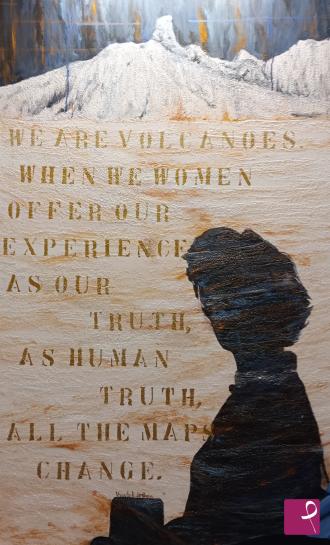 WE ARE VOLCANOES.
WHEN WE WOMEN
OFFER OUR
EXPERIENCE
AS OUR
TRUTH,
AS HUMAN
TRUTH,
ALL THE MAPS
CHANGE.